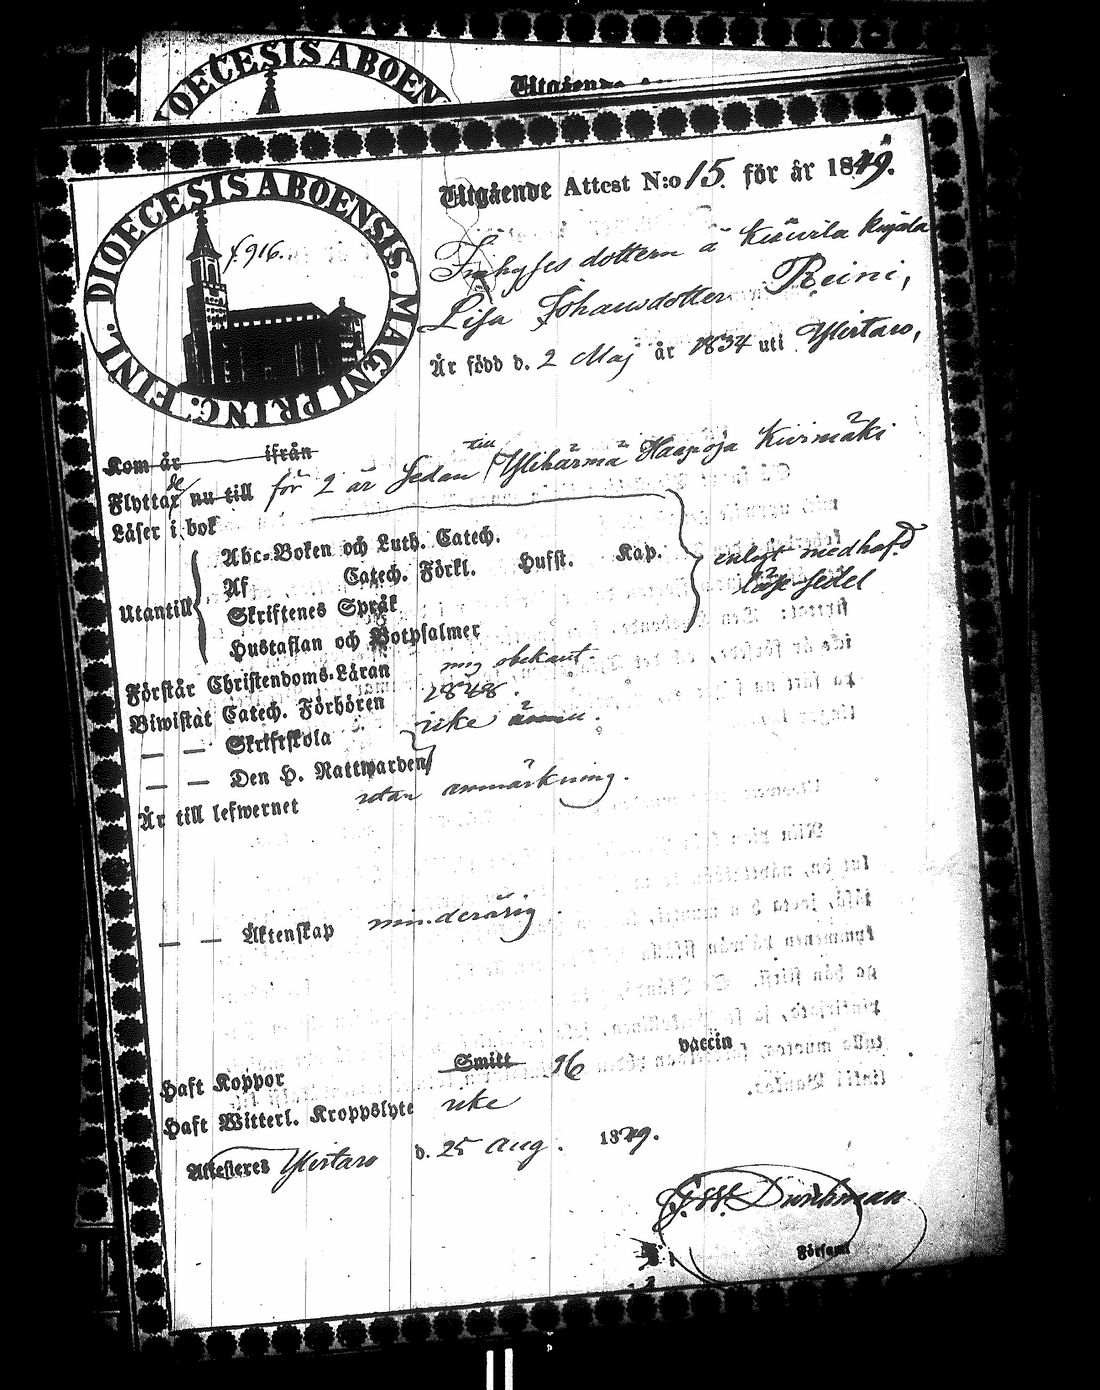 DIOECESIS ABOENSIS
Utgående
DIOECESIS ABOENSIS. MAGNI PRINC: FINL.
f. 916.
Utgående Attest N:o 15. för år 1849.
dottern å Kujala
Lisa Johansdotter Reini,
Är född d. 2 Maj år 1834 uti Ylistaro,
Kom år ifrån
till
Flyttade nu till för 2 år sedan Ylihärmä Haapoja Kivimäki
Läser i bok
Abc-Boken och Luth. Catech.
Af Catech. Förkl. Husst. Kap.
enligt medhafd
Utantill
Skriftenes Språk
läse sedel
Hustaflan och Botpsalmer
Förstår Christendoms-Läran mig obekant.
Biwistat Catech. Förhören 1848.
— — Skriftskola icke ännu.
— — Den H. Nattwarden
Är till lefwernet utan anmärkning.
— — Äktenskap minderårig.
Haft Koppor Smitt vaccin
Haft Witterl. Kroppslyte icke
Attesteres Ylistaro d. 25 Aug. 1849.
G. W.